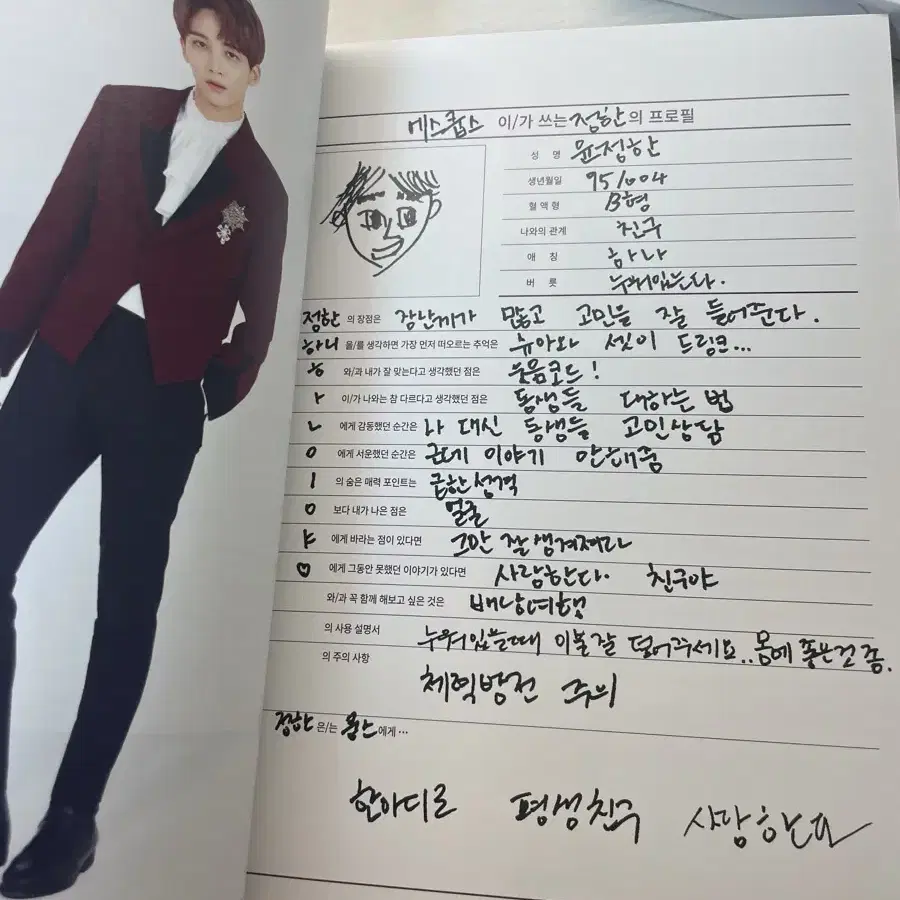 에스쿱스 이/가 쓰는 정한의 프로필
성 명 윤정한
생년월일 951004
혈액형 B형
나와의 관계 친구
애 칭 하나
버 릇 누워있는다.
정한의 장점은 장난끼가 많고 고민을 잘 들어준다.
하니 을/를 생각하면 가장 먼저 떠오르는 추억은 슈아와 셋이 드링크...
ㅎ 와/과 내가 잘 맞는다고 생각했던 점은 웃음코드!
ㅏ 이/가 나와는 참 다르다고 생각했던 점은 동생들 대하는 법
ㄴ 에게 감동했던 순간은 나 대신 동생들 고민상담
ㅇ 에게 서운했던 순간은 근데 이야기 안해줌
ㅣ 의 숨은 매력 포인트는 급한성격
ㅇ 보다 내가 나은 점은 얼굴
ㅑ 에게 바라는 점이 있다면 그만 잘생겨져라
♡ 에게 그동안 못했던 이야기가 있다면 사랑한다. 친구야
와/과 꼭 함께 해보고 싶은 것은 배낭여행
의 사용 설명서 누워있을때 이불잘 덮어주세요..몸에 좋은것 좀.
의 주의 사항
체력방전 주의
정한 은/는 쿱스에게…
한마디로 평생친구 사랑한다